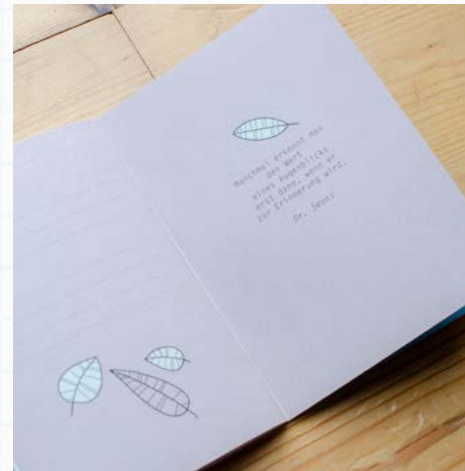 Manchmal erkennt man
den Wert
eines Augenblicks
erst dann, wenn er
zur Erinnerung wird.
Dr. Seuss